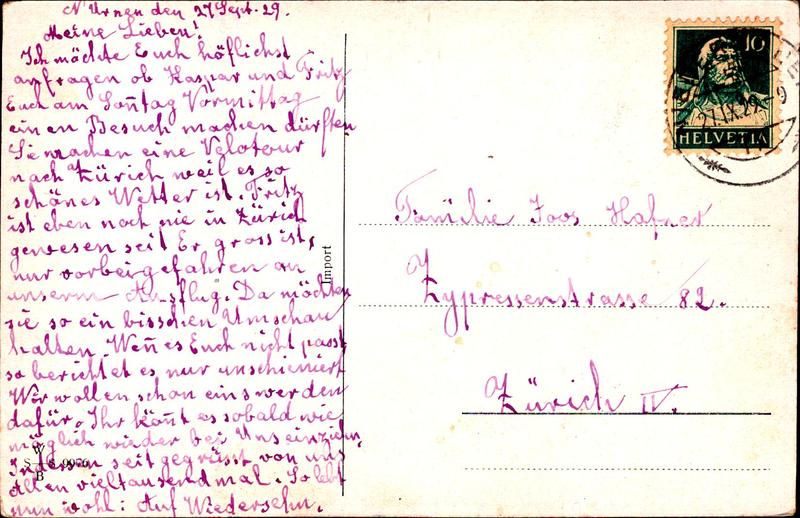 N'Urnen den 27 Sept. 29.
Meine Lieben!
Ich möchte Euch höflichst
anfragen ob Kaspar und Fritz
Euch am Soñtag Vormittag
einen Besuch machen dürften
Sie machen eine Velotour
nach Zürich weil es so
schönes Wetter ist. Fritz
ist eben noch nie in Zürich
gewesen seit Er gross ist,
nur vorbeigefahren an
unserm Ausflug. Da möchten
sie so ein bisschen Umschau
halten. Weñ es Euch nicht passt
so berichtet es nur unscheniert
Wir wollen schon eins werden
dafür. Ihr köñt es sobald wie
möglich wieder bei Uns einziehn.
Indessen seit gegrüsst von uns
Allen vieltausendmal. So lebt
nun wohl: Auf Wiedersehn.
Import
W
S 9976
B
10
HELVETIA
27.IX.29
Familie Joos Hafner
Zypressenstrasse 82.
Zürich IV.